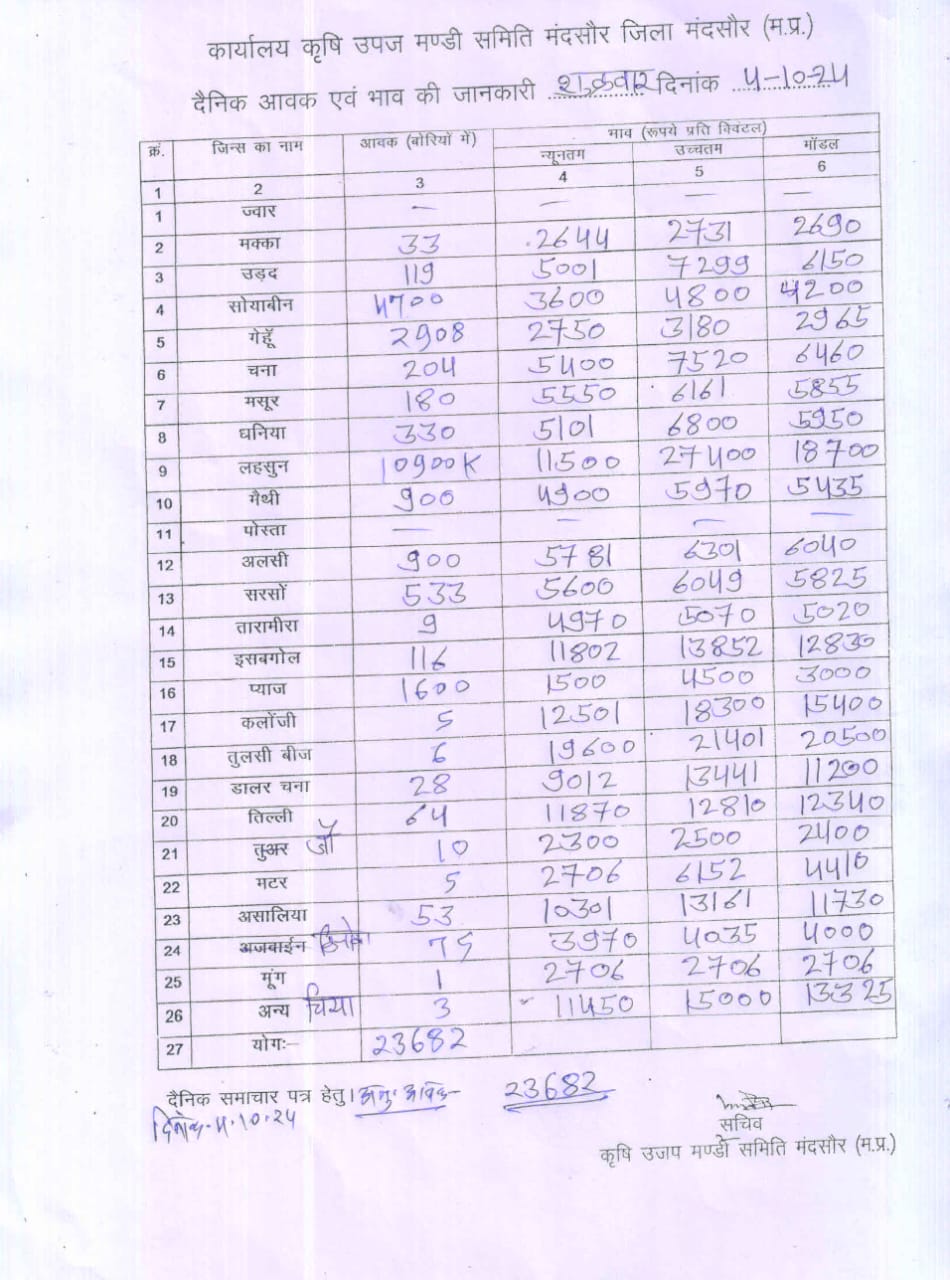 कार्यालय कृषि उपज मण्डी समिति मंदसौर जिला मंदसौर (म.प्र.)
दैनिक आवक एवं भाव की जानकारी शुक्रवार दिनांक 4-10-24
क्रं. जिन्स का नाम आवक (बोरियों में) भाव (रूपये प्रति क्विंटल)
न्यूनतम उच्चतम मॉडल
1 2 3 4 5 6
1 ज्वार — — — —
2 मक्का 33 2644 2731 2690
3 उड़द 119 5001 7299 6150
4 सोयाबीन 4700 3600 4800 4200
5 गेहूँ 2908 2750 3180 2965
6 चना 204 5400 7520 6460
7 मसूर 180 5550 6161 5855
8 धनिया 330 5101 6800 5950
9 लहसुन 10900K 11500 27400 18700
10 मैथी 900 4900 5970 5435
11 पोस्ता — — — —
12 अलसी 900 5781 6301 6040
13 सरसों 533 5600 6049 5825
14 तारामीरा 9 4970 5070 5020
15 इसबगोल 116 11802 13852 12830
16 प्याज 1600 1500 4500 3000
17 कलोंजी 5 12501 18300 15400
18 तुलसी बीज 6 19600 21401 20500
19 डालर चना 28 9012 13441 11200
20 तिल्ली 64 11870 12810 12340
21 तुअर जौ 10 2300 2500 2400
22 मटर 5 2706 6152 4410
23 असालिया 53 10301 13161 11730
24 अजवाईन 75 3970 4035 4000
25 मूंग 1 2706 2706 2706
26 अन्य चिया 3 11450 15000 13325
27 योगः- 23682
दैनिक समाचार पत्र हेतु। अनु. आवक- 23682
दिनांक- 4.10.24
सचिव
कृषि उजप मण्डी समिति मंदसौर (म.प्र.)